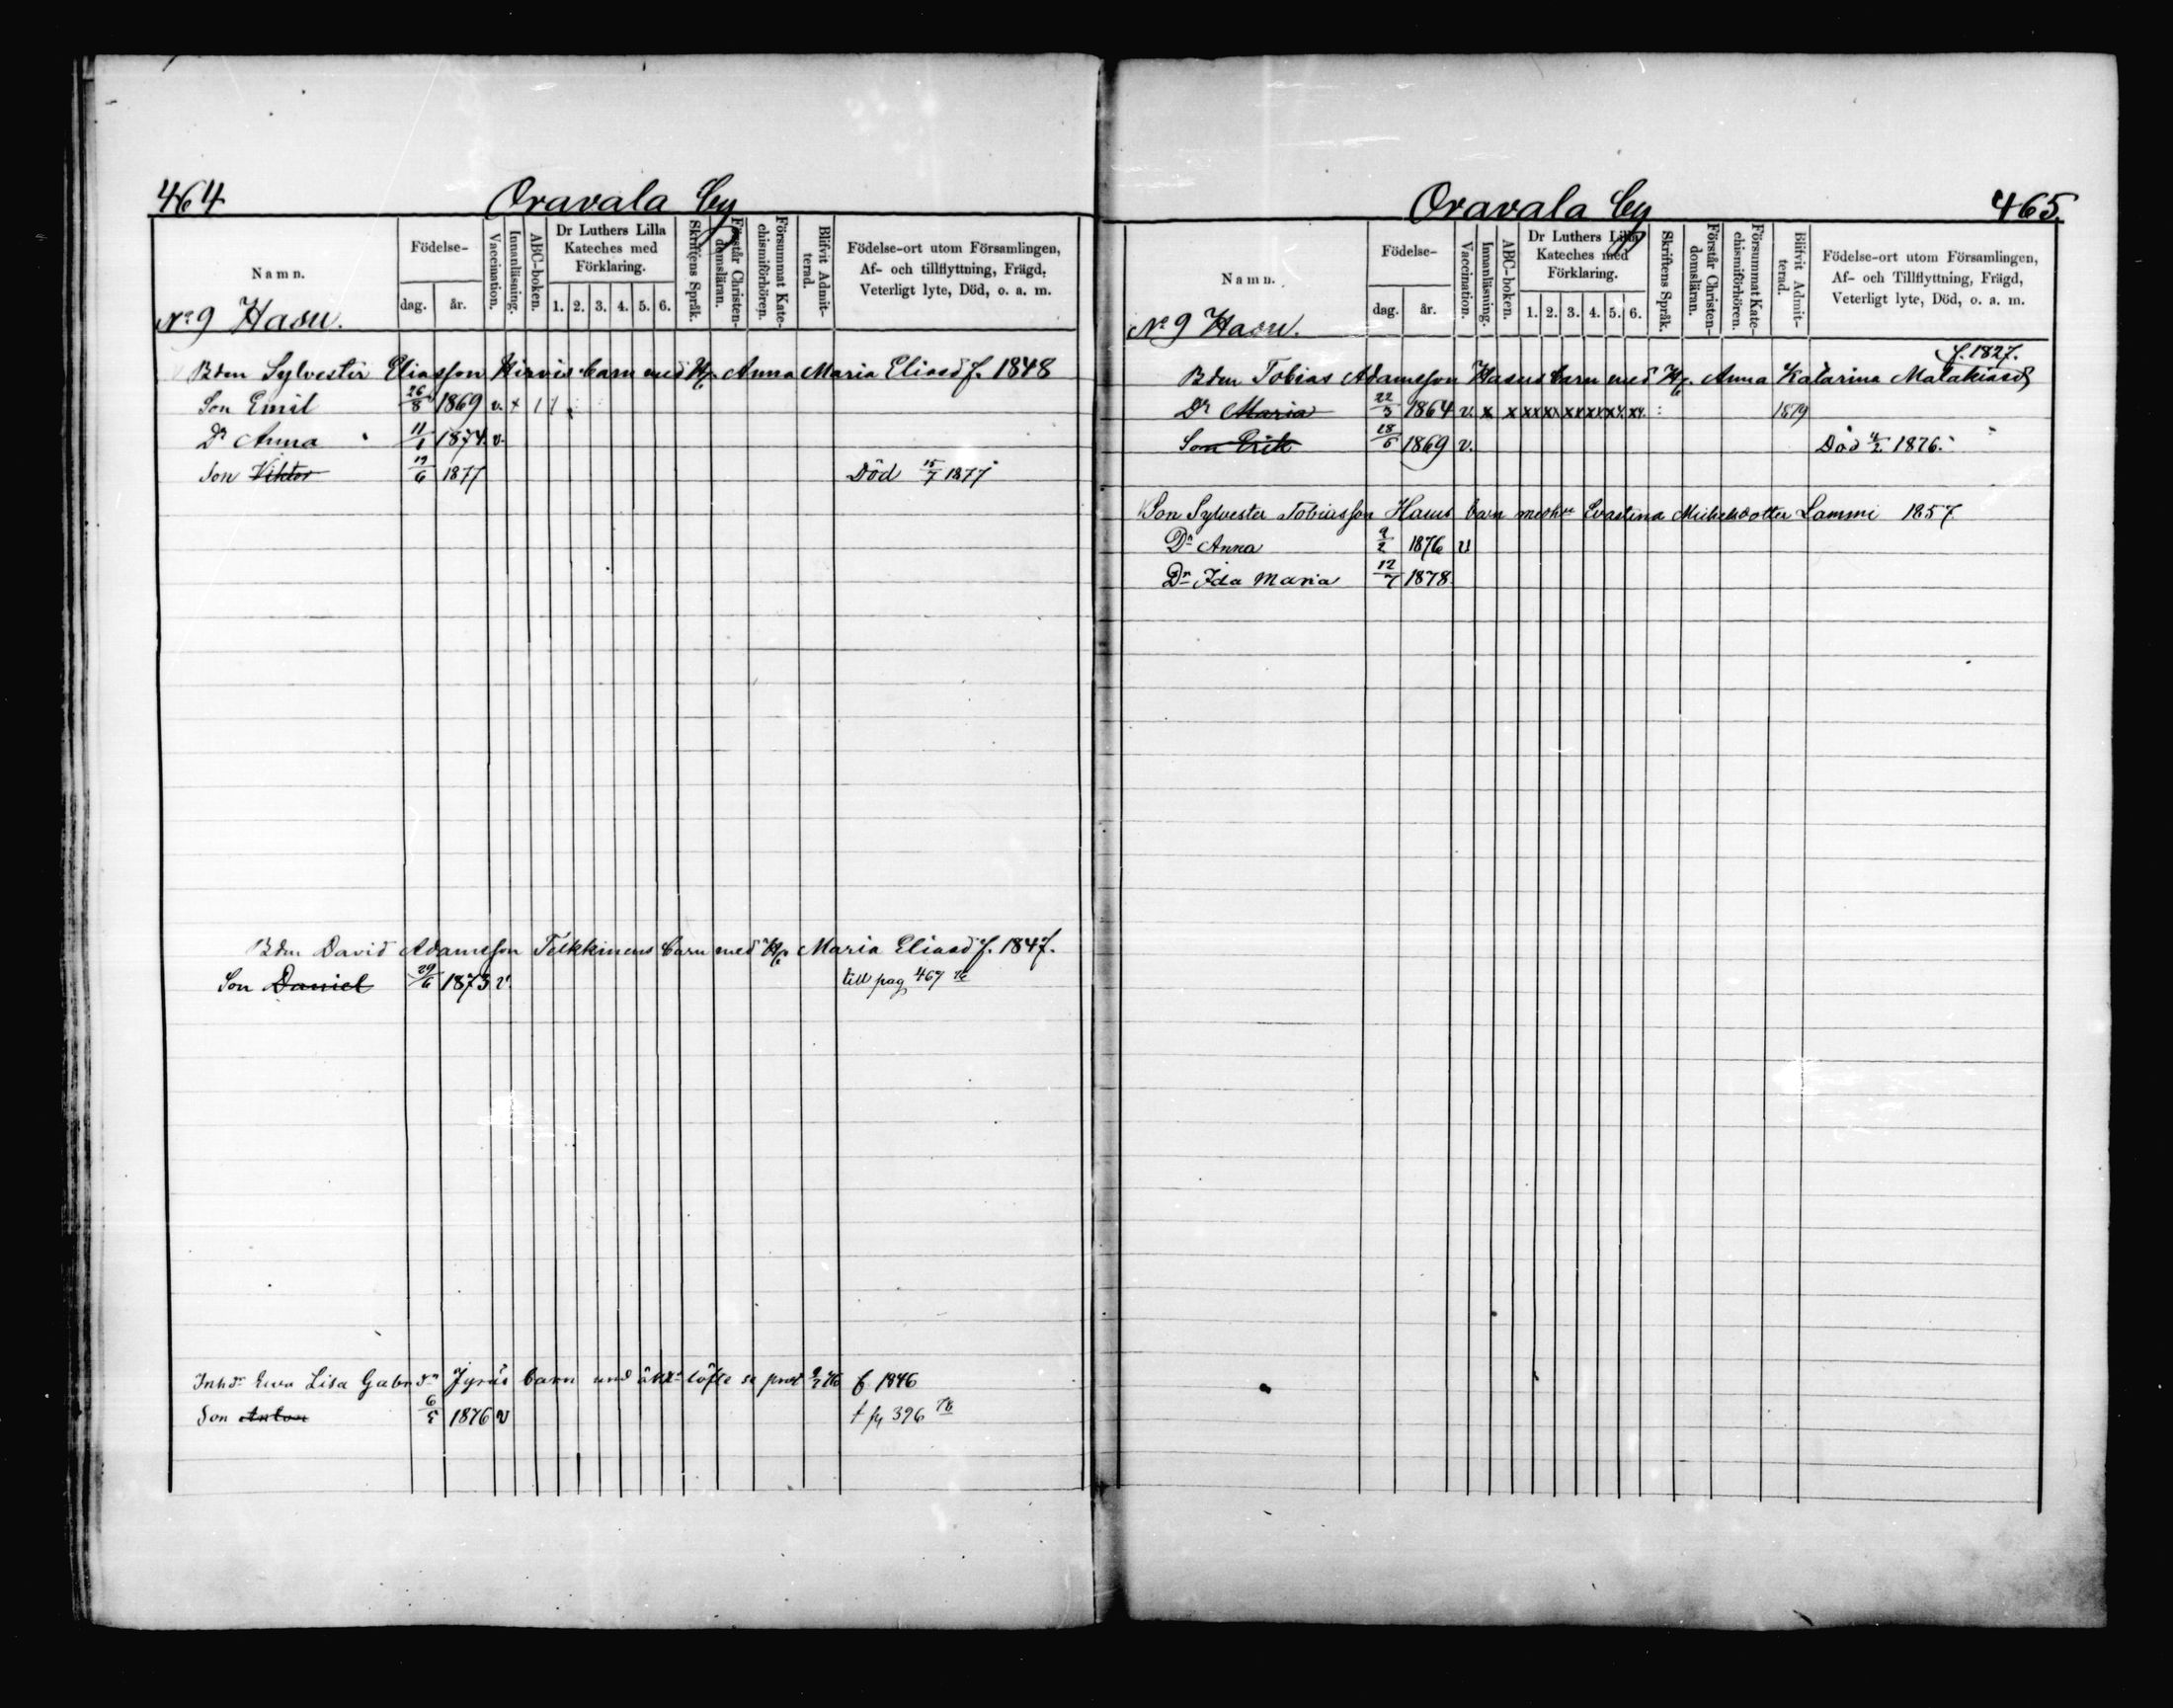 464 Oravala by
Namn. Födelse- dag. år. Vaccination. Innanläsning. ABC-boken. Dr Luthers Lilla Kateches med Förklaring. 1. 2. 3. 4. 5. 6. Skriftens Språk. Förstår Christen-domsläran. Försummat Kate-chismiförhören. Blifvit Admit-terad. Födelse-ort utom Församlingen, Af- och tillflyttning, Frägd, Veterligt lyte, Död, o. a. m.
No 9 Hasu.
Bdm Sylvester Eliasson Hirvis barn med Anna Maria Eliasd f. 1848
Son Emil 26/8 1869 v. x
Dr Anna 11/1 1874 v.
Son Viktor 19/6 1877 Död 15/7 1877
Bdm David Adamsson Telkkinens barn med Maria Eliasd f. 1847.
Son Daniel 29/6 1873 v. till pag 467 76
Lisa Jyräs barn löfte se f 1846
Son Anton 6/5 1876 v 396 78
Oravala by 465.
Namn. Födelse- dag. år. Vaccination. Innanläsning. ABC-boken. Dr Luthers Lilla Kateches med Förklaring. 1. 2. 3. 4. 5. 6. Skriftens Språk. Förstår Christen-domsläran. Försummat Kate-chismiförhören. Blifvit Admit-terad. Födelse-ort utom Församlingen, Af- och Tillflyttning, Frägd, Veterligt lyte, Död, o. a. m.
No 9 Hasu.
f. 1827.
Bdm Tobias Adamsson Hasus barn med Anna Katarina Malakiasd
Dr Maria 22/3 1864 v. x x xx xx xx xx xx xx 1879
Son Erik 18/5 1869 v. Död 4/2 1876.
Son Sylvester Tobiasson Hasus barn med Evastina Mickelsdotter Lammi 1857
Dr Anna 9/2 1876 v
Dr Ida Maria 12/7 1878